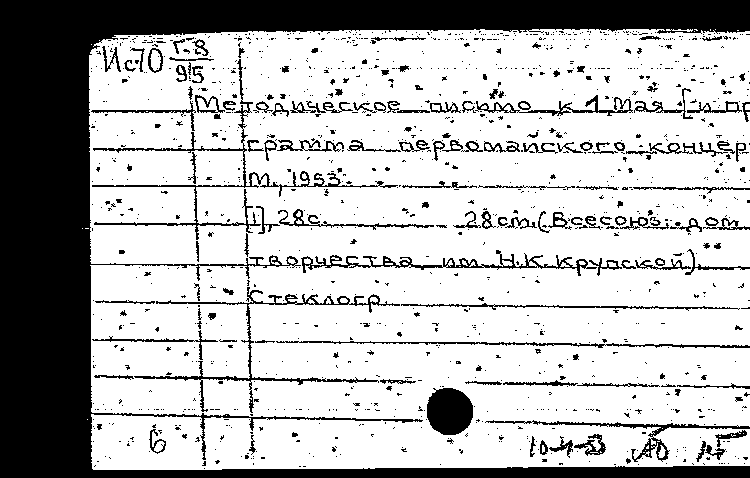 Ис70 Г-8
95
Методическое письмо к 1 Мая [и пр
грамма первомайского концер
М., 1953.
[1], 28с. 28 cm. (Всесоюз. дом
творчества им Н.К. Крупской).
Стеклогр.
6